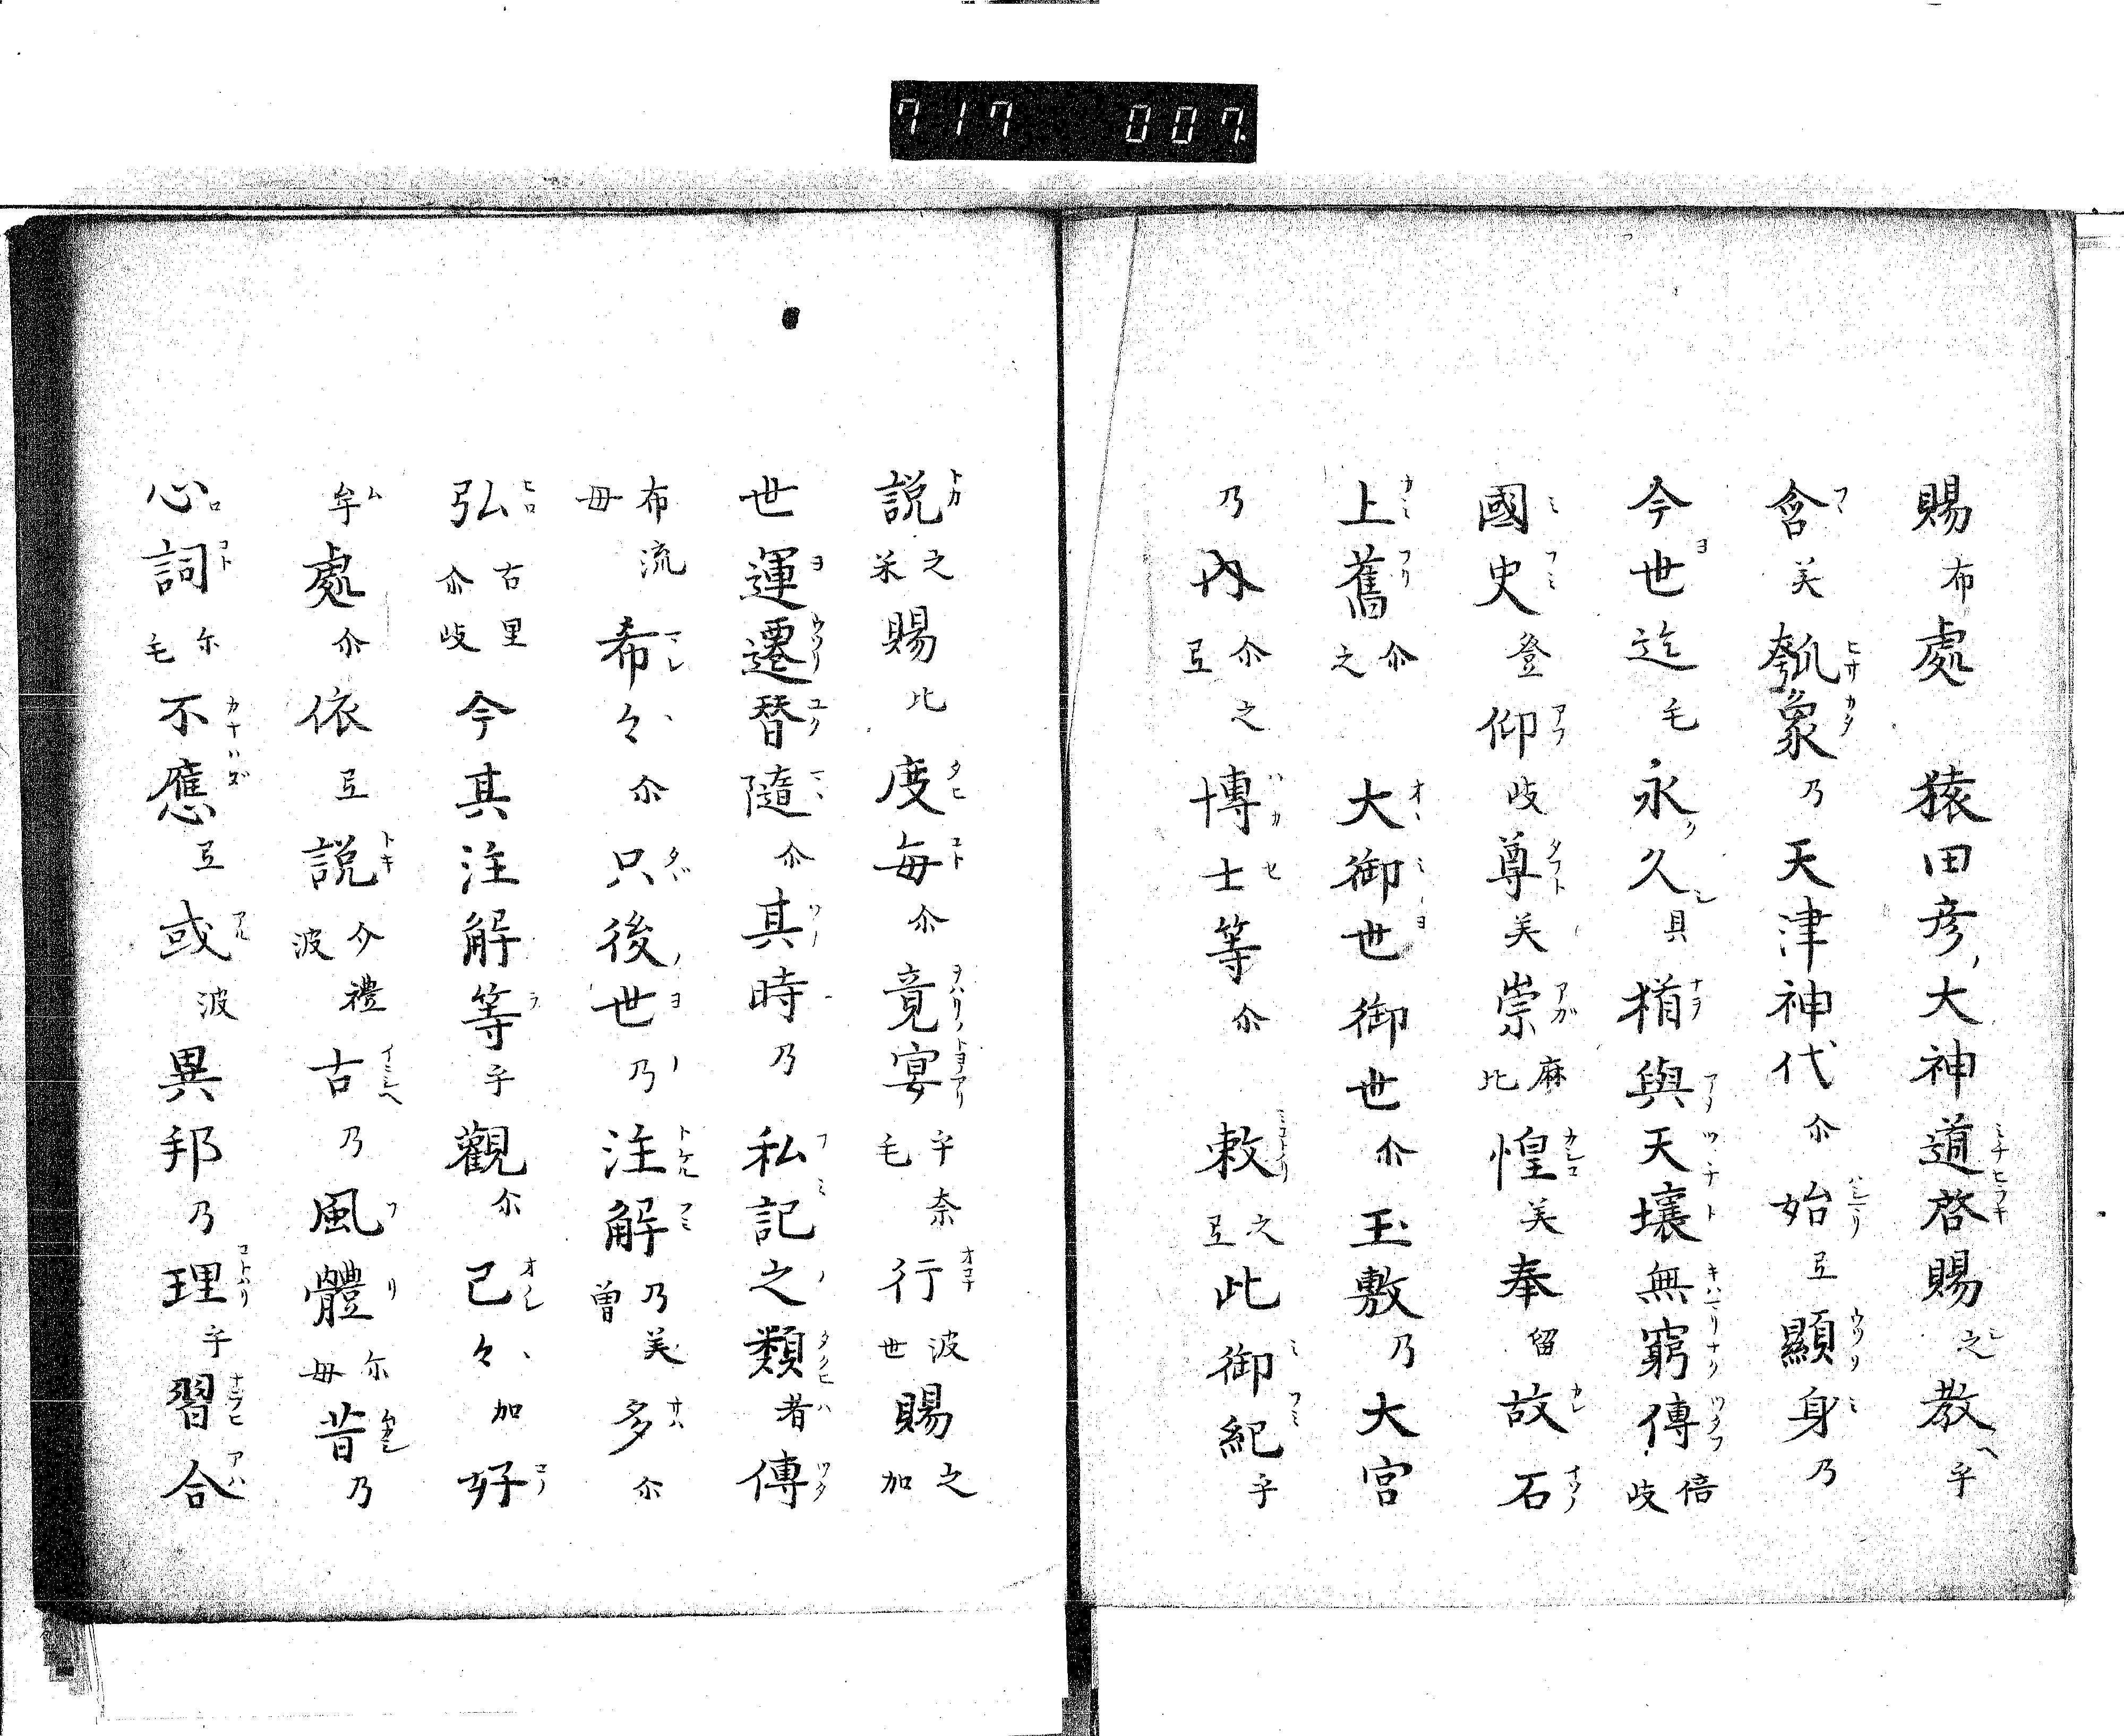 717 007
賜布處 猿田彦大神道啓賜之教乎
含美瓠象乃天津神代尒始弖顯身乃
今世迄毛永久具楢與天壤無窮傳倍岐
國史登仰岐尊美崇麻比惶美奉留故石
上舊尒之 大御世御世尒玉敷乃大宮
乃內尒弖之博士等尒 敕之弖此御紀乎
說之米賜比度每尒竟宴乎毛奈行波世賜之加
世運遷替隨尒其時乃私記之類者傳
布流毋希々尒只後世乃注解乃美曽多尒
弘古里尒岐今其注解等乎觀尒己々加好
牟處尒依弖說介禮波古乃風體尒毋昔乃
心詞尒毛不應弖或波異邦乃理乎習合